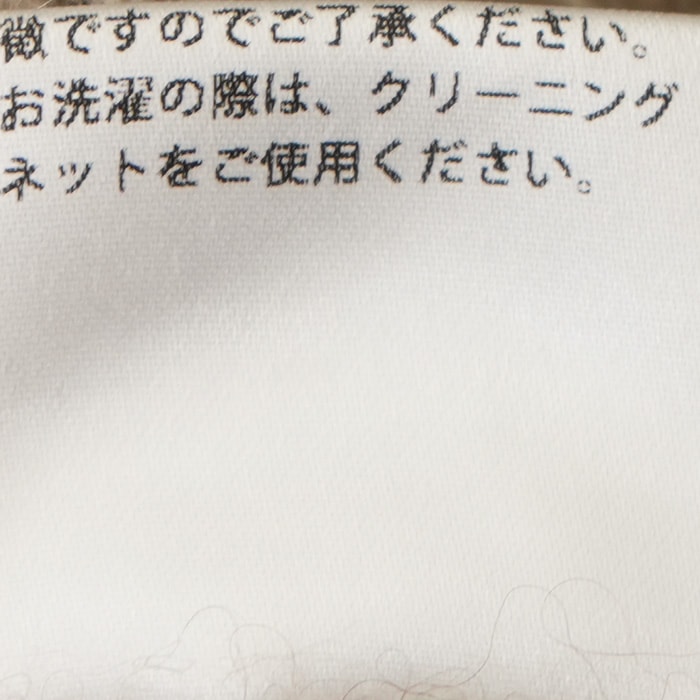 徴ですのでご了承ください。
お洗濯の際は、クリーニング
ネットをご使用ください。